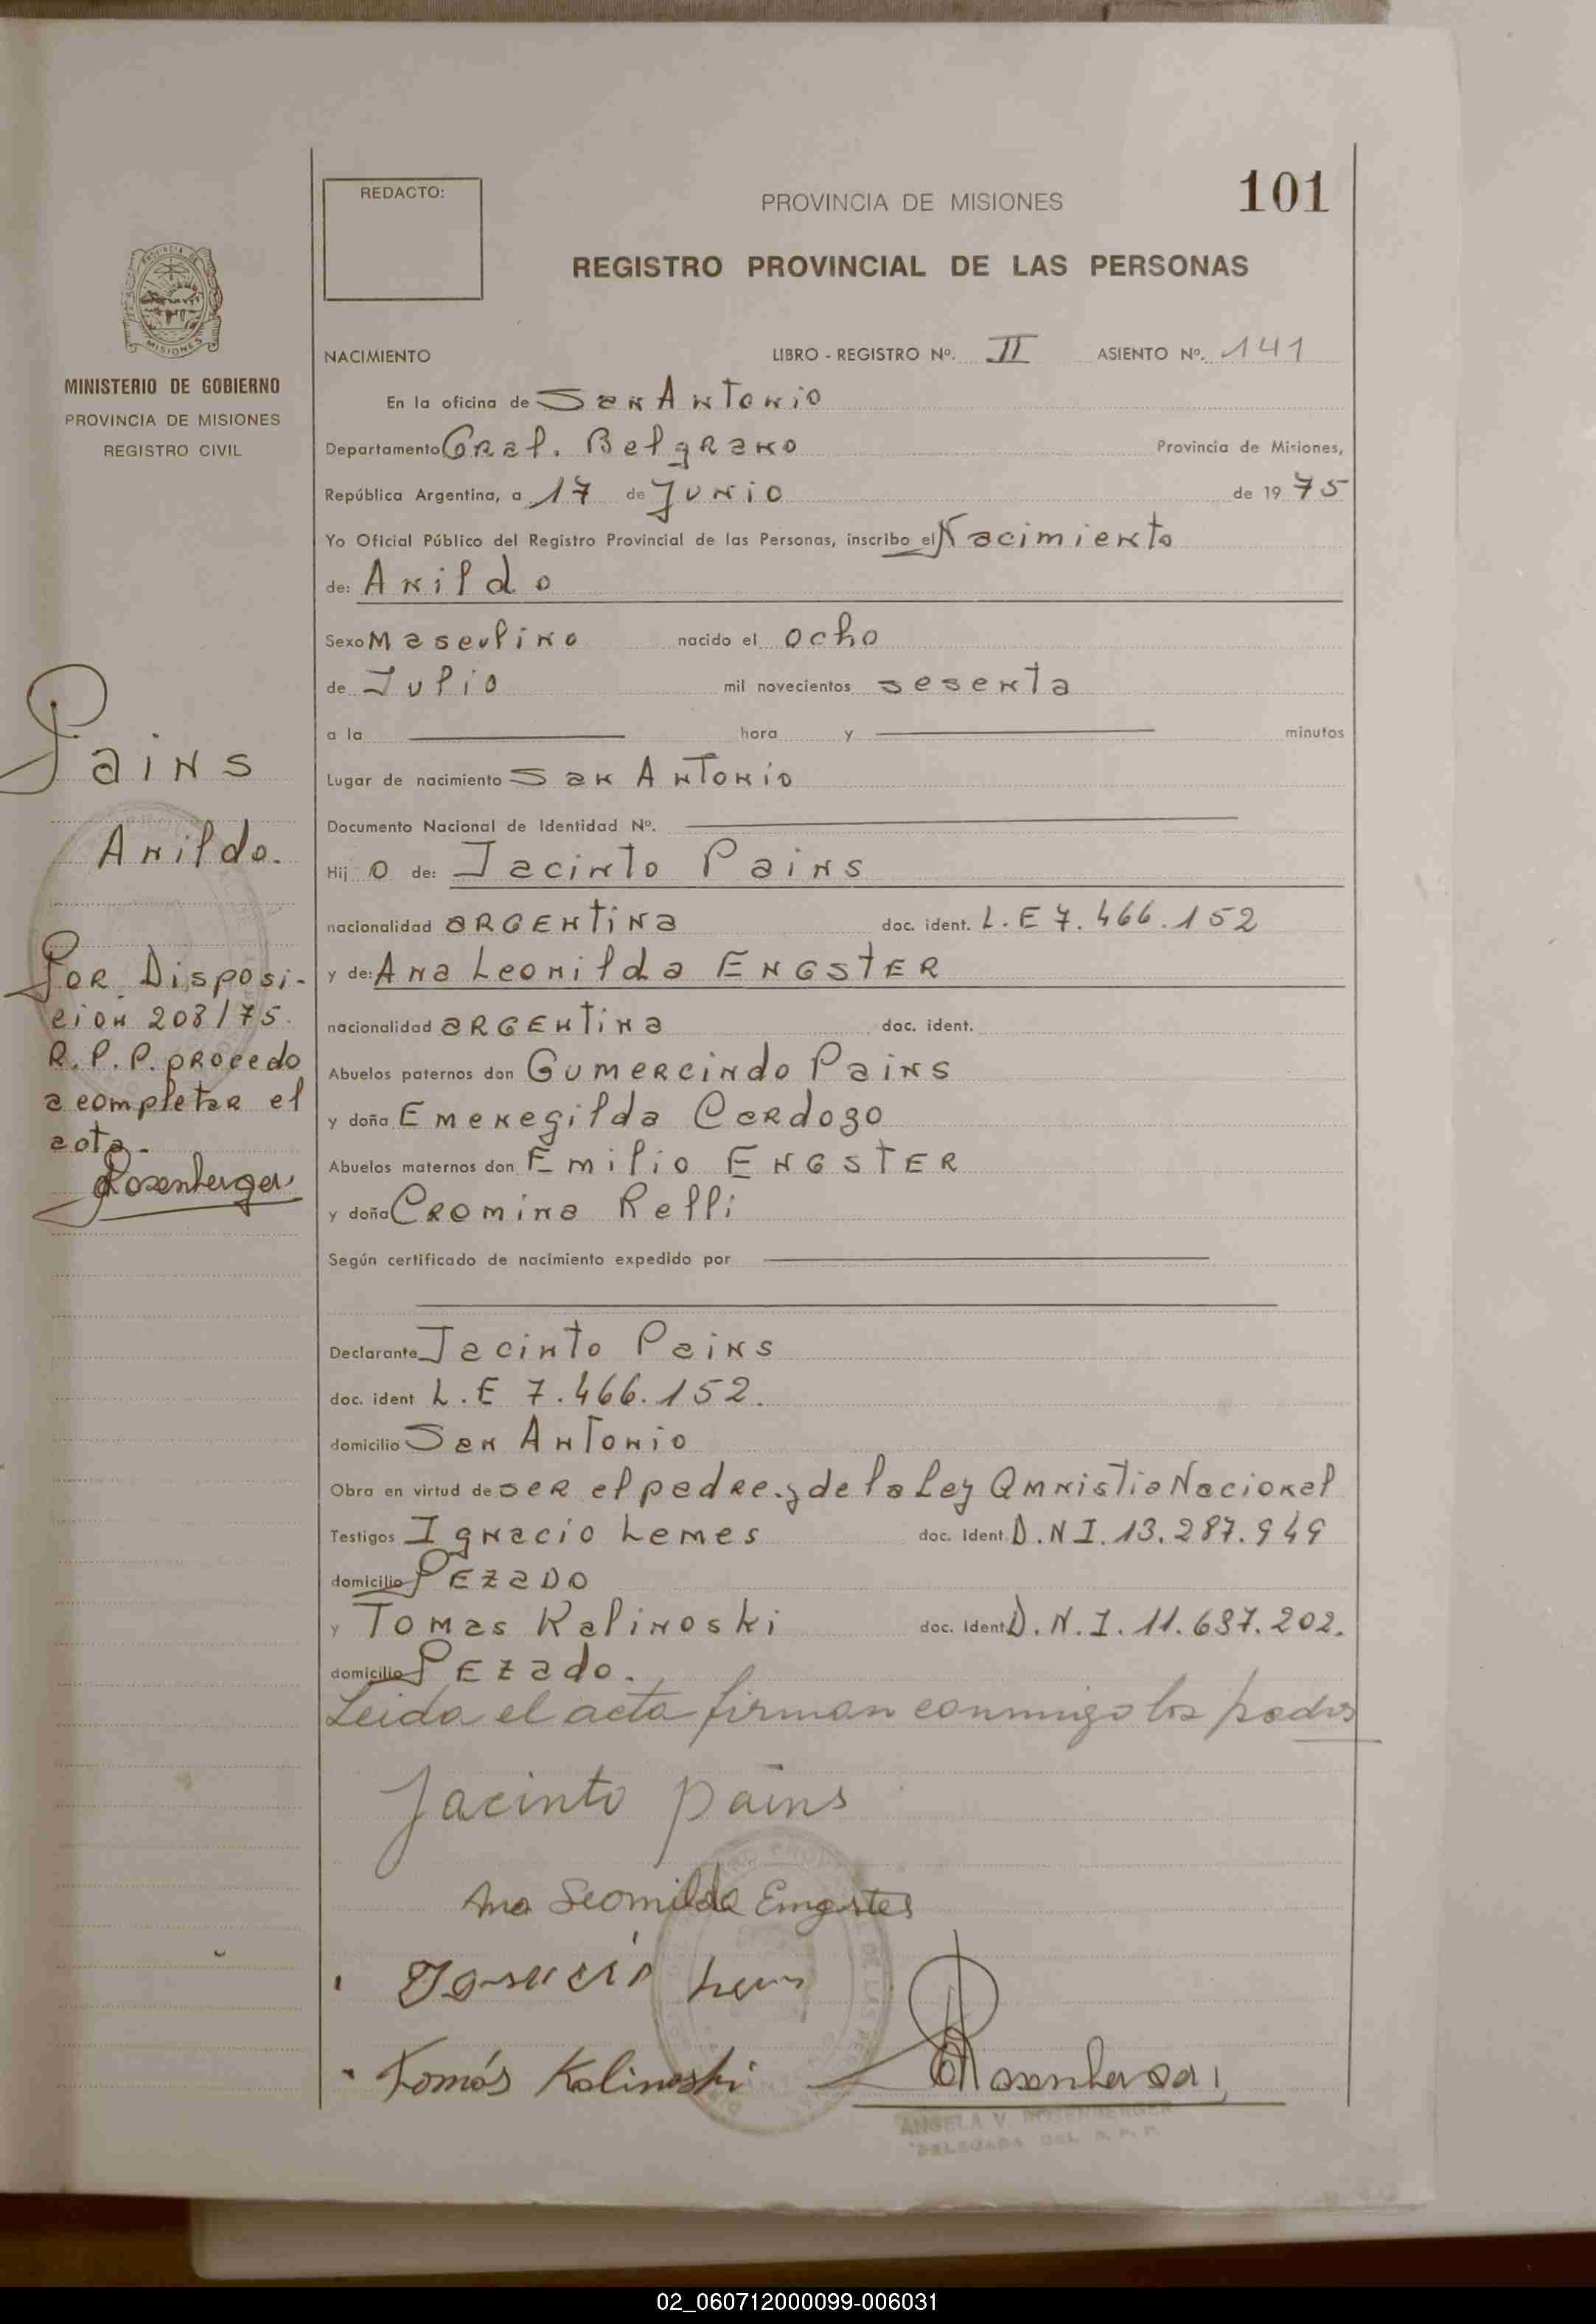 REDACTO:
PROVINCIA DE MISIONES
101
REGISTRO PROVINCIAL DE LAS PERSONAS
MISIONES
MINISTERIO DE GOBIERNO
PROVINCIA DE MISIONES
REGISTRO CIVIL
NACIMIENTO LIBRO - REGISTRO Nº. II ASIENTO Nº. 141
En la oficina de San Antonio
Departamento Gral. Belgrano Provincia de Misiones,
República Argentina, a 17 de Junio de 19 75
Yo Oficial Público del Registro Provincial de las Personas, inscribo el Nacimiento
de: Anildo
Sexo Masculino nacido el ocho
de Julio mil novecientos sesenta
a la hora y minutos
Lugar de nacimiento San Antonio
Documento Nacional de Identidad Nº.
Hij o de: Jacinto Pains
nacionalidad argentina doc. ident. L.E 7.466.152
y de: Ana Leonilda ENGSTER
nacionalidad argentina doc. ident.
Abuelos paternos don Gumercindo Pains
y doña Emenegilda Cardozo
Abuelos maternos don Emilio ENGSTER
y doña Cromina Relli
Según certificado de nacimiento expedido por
Declarante Jacinto Pains
doc. ident L.E 7.466.152.
domicilio San Antonio
Obra en virtud de ser el padre y de la Ley Amnistia Nacional
Testigos Ignacio Lemes doc. ident. D.N I. 13.287.949
domicilio Pezado
y Tomas Kalinoski doc. ident D.N.I. 11.637.202.
domicilio Pezado.
Leida el acta firman conmigo los padres
Jacinto pains
Ana Leonilda Engster
Tomás Kalinoski
Rosenberger
ANGELA V. ROSENBERGER
DELEGADA DEL R. P. P.
Pains
Anildo.
Por Disposi-
cion 208/75.
R.P.P. procedo
a completar el
acta.
Rosenberger
02_060712000099-006031